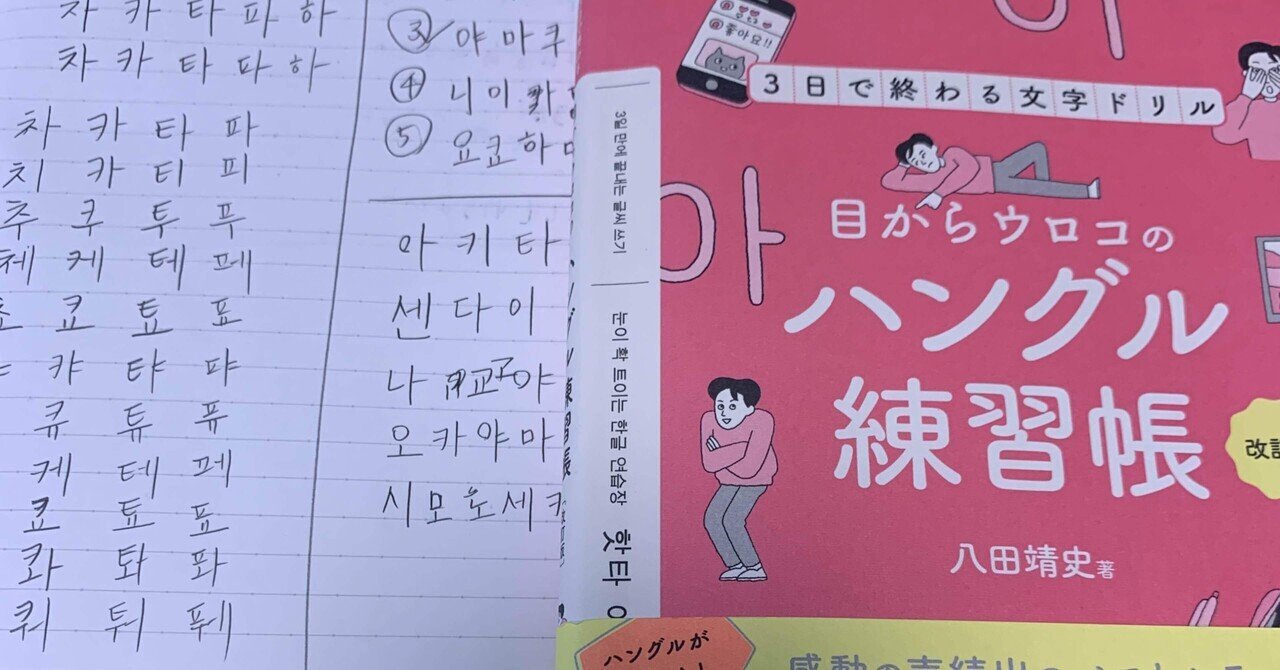 차 카 타 파 하
차 카 타 파 하
차 카 타 파
치 카 티 피
추 쿠 투 푸
체 케 테 페
쿄 툐 표
캬 탸 퍄
큐 튜 퓨
케 테 페
쿄 툐 표
콰 톼 퐈
쿼 퉈 풰
③ 야 마 쿠
④ 니 이
⑤ 요 쿄 하
아 키 타
센 다 이
나 교 야
오 카 야 마
시 모 노 세 키
3일 만에 끝내는 글씨 쓰기
눈이 확 트이는 한글 연습장
핫타
좋아요!!
3日で終わる文字ドリル
아
目からウロコの
ハングル
練習帳
改訂
八田靖史著
ハングルが
感動の声続出